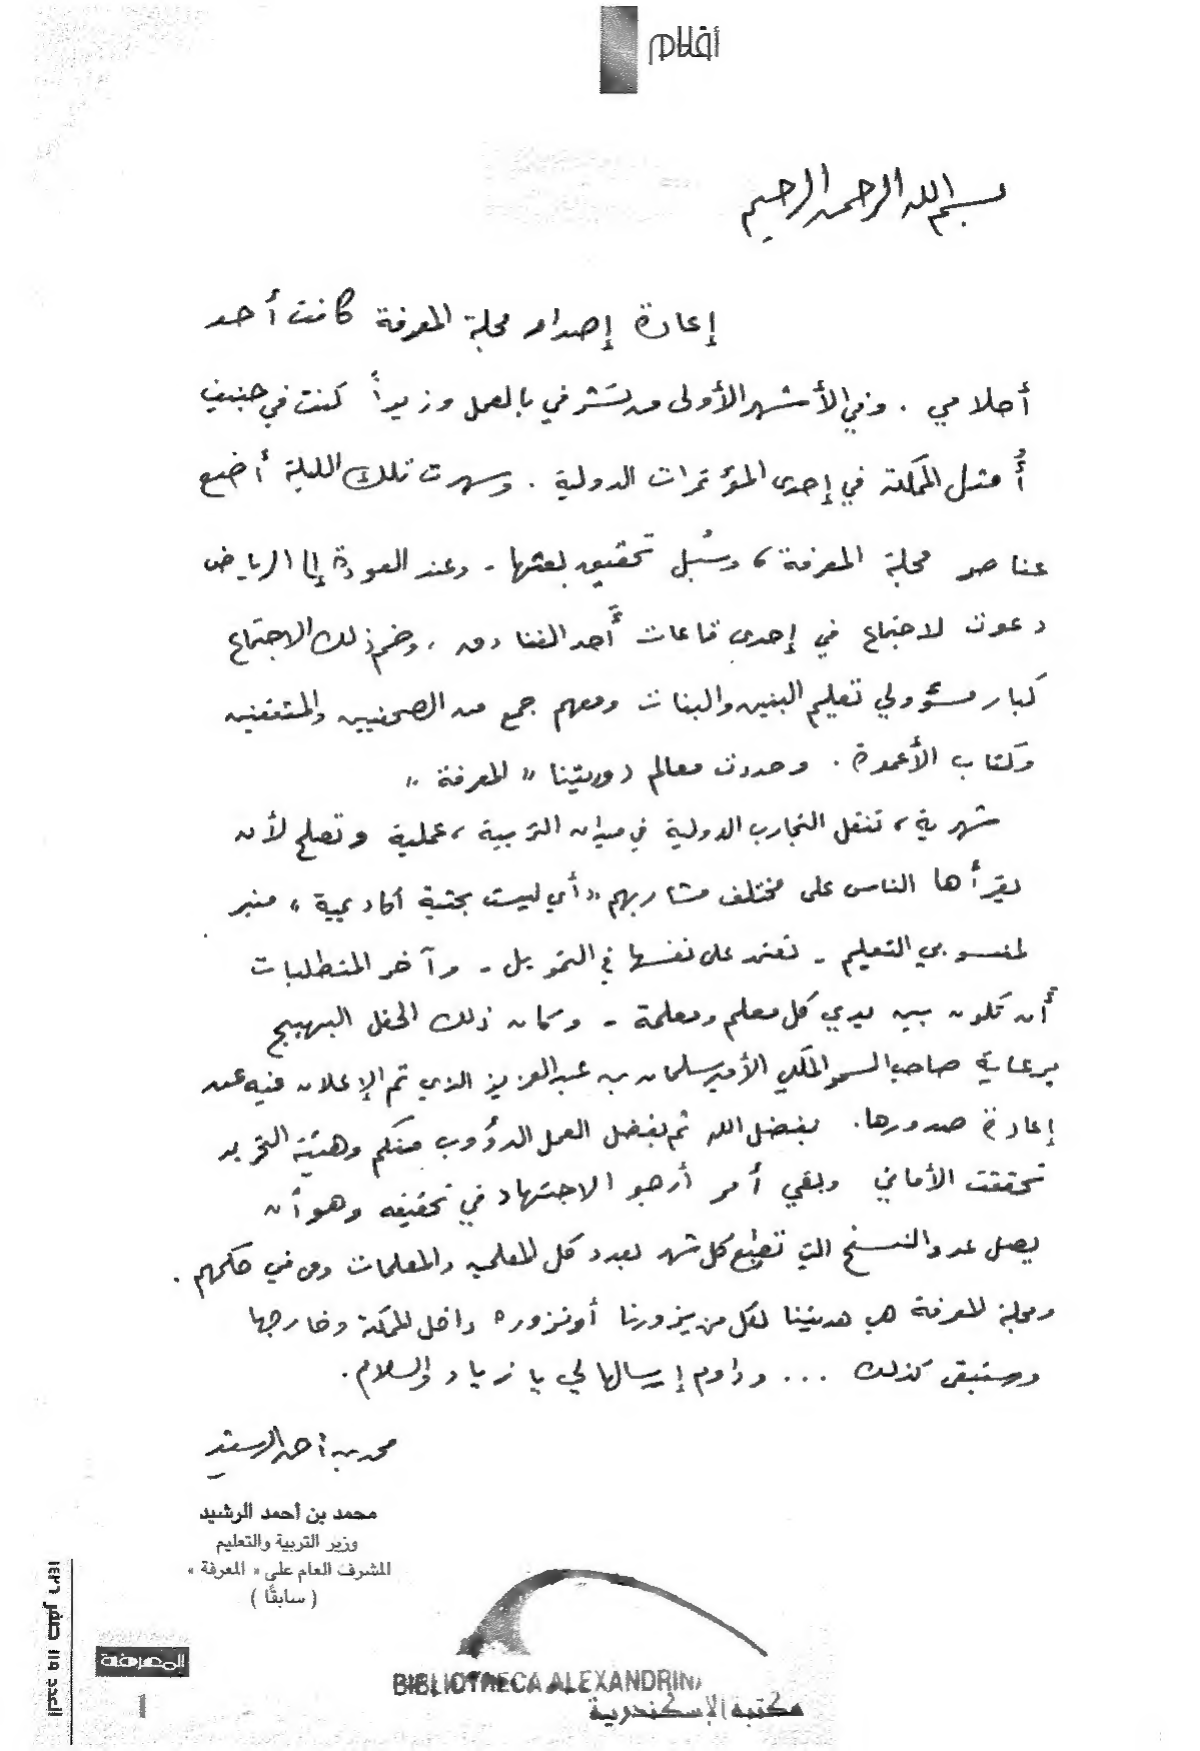 أقلام
بسم الله الرحمن الرحيم
إعادة إصدار مجلة المعرفة كانت أحد
أحلامي . وفي الأشهر الأولى من تشرفي بالعمل وزيراً كنت في جنيف
أُمثل المملكة في إحدى المؤتمرات الدولية . وسهرت تلك الليلة أضع
عناصر مجلة المعرفة، وسُبل تحقيق بعثها - وعند العودة إلى الرياض
دعوت لاجتماع في إحدى قاعات أحد الفنادق ، وضم ذلك الاجتماع
كبار مسؤولي تعليم البنين والبنات ومعهم جمع من الصحفيين والمثقفين
وكتاب الأعمدة . وحددت معالم دوريتنا " المعرفة "
شهرية ، تنقل التجارب الدولية في ميدان التربية ، عملية وتصلح لأن
يقرأها الناس على مختلف مشاربهم " أي ليست بحثية أكاديمية " منبر
لمنسوبي التعليم - تعتمد على نفسها في التمويل - وآخر المتطلبات
أن تكون بين يدي كل معلم ومعلمة - وكان ذلك الحفل البهيج
برعاية صاحب السمو الملكي الأمير سلمان بن عبدالعزيز الذي تم الإعلان فيه عن
إعادة صدورها . بفضل الله ثم بفضل العمل الدؤوب منكم وهيئة التحرير
تحققت الأماني وبقي أمر أرجو الاجتهاد في تحقيقه وهو أن
يصل عدد النسخ التي تطبع كل شهر بعدد كل المعلمين والمعلمات ومن في حكمهم .
ومجلة المعرفة هي هديتنا لكل من يزورنا أو نزوره داخل المملكة وخارجها
وستبقى كذلك ... وداوم إرسالها لي يا زياد والسلام .
محمد بن أحمد الرشيد
محمد بن أحمد الرشيد
وزير التربية والتعليم
المشرف العام على « المعرفة »
( سابقًا )
المعرفة
1
BIBLIOTHECA ALEXANDRINA
مكتبة الإسكندرية